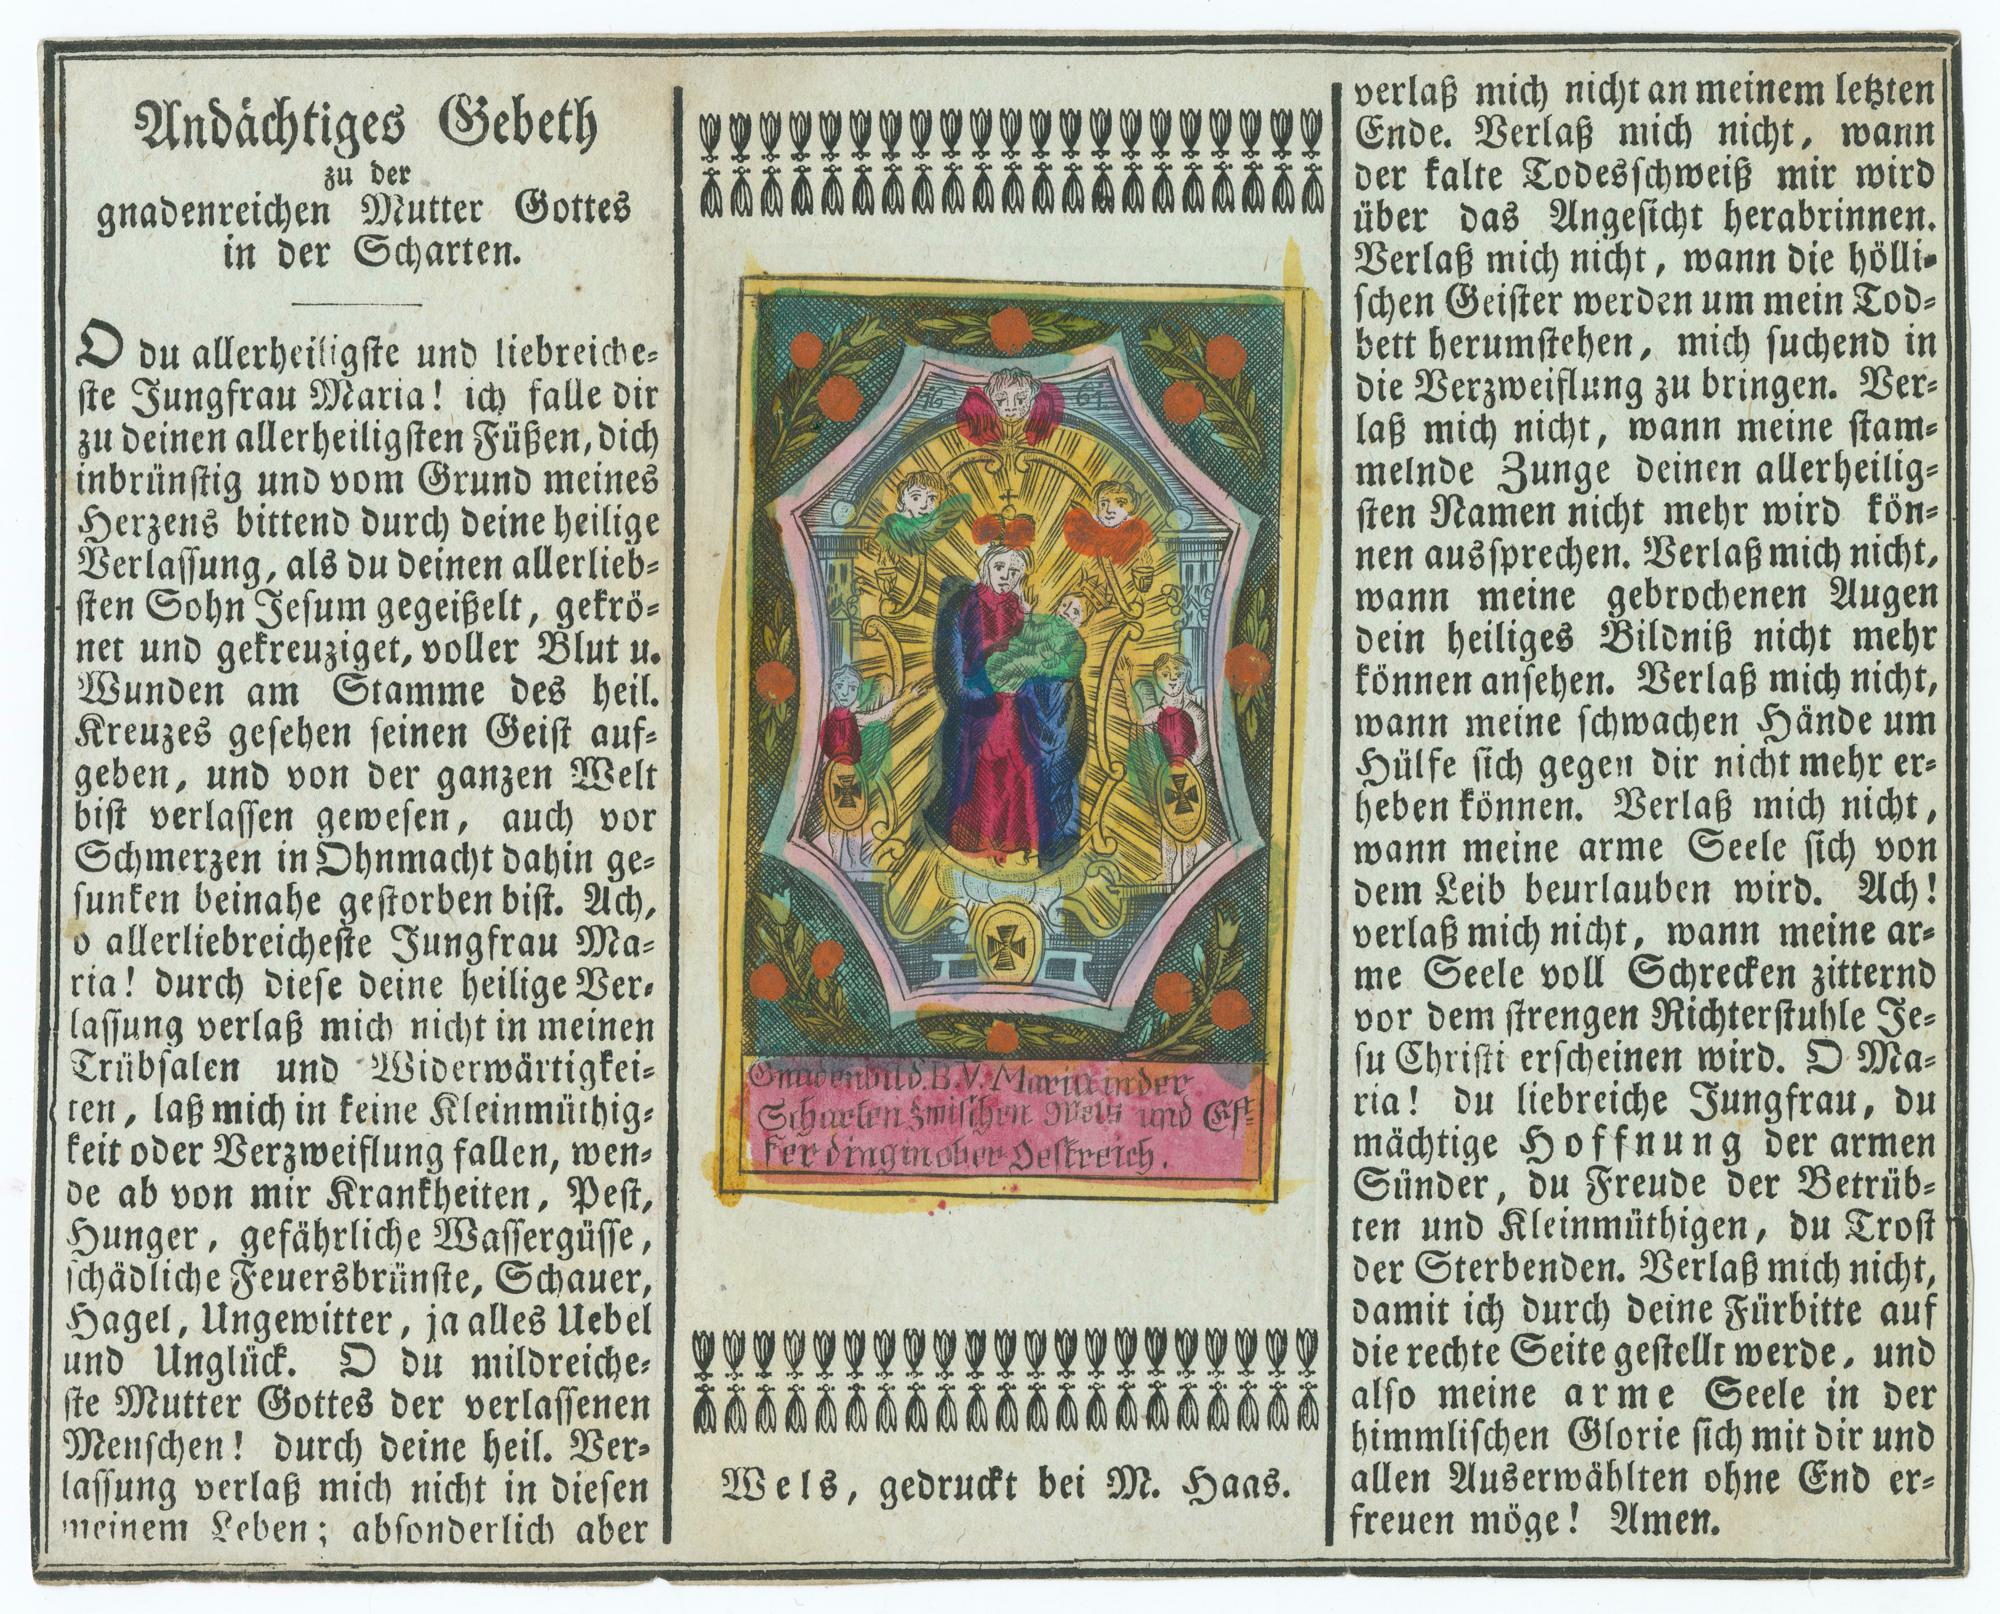 Andächtiges Gebeth
zu der
gnadenreichen Mutter Gottes
in der Scharten.
O du allerheiligste und liebreiche=
ste Jungfrau Maria! ich falle dir
zu deinen allerheiligsten Füßen, dich
inbrünstig und vom Grund meines
Herzens bittend durch deine heilige
Verlassung, als du deinen allerlieb=
sten Sohn Jesum gegeißelt, gekrö=
net und gekreuziget, voller Blut u.
Wunden am Stamme des heil.
Kreuzes gesehen seinen Geist auf=
geben, und von der ganzen Welt
bist verlassen gewesen, auch vor
Schmerzen in Ohnmacht dahin ge=
sunken beinahe gestorben bist. Ach,
o allerliebreicheste Jungfrau Ma=
ria! durch diese deine heilige Ver=
lassung verlaß mich nicht in meinen
Trübsalen und Widerwärtigkei=
ten, laß mich in keine Kleinmüthig=
keit oder Verzweiflung fallen, wen=
de ab von mir Krankheiten, Pest,
Hunger, gefährliche Wassergüsse,
schädliche Feuersbrünste, Schauer,
Hagel, Ungewitter, ja alles Uebel
und Unglück. O du mildreiche=
ste Mutter Gottes der verlassenen
Menschen! durch deine heil. Ver=
lassung verlaß mich nicht in diesen
meinem Leben; absonderlich aber
Gnadenbild B.V. Maria in der
Scharten zwischen Wels und Ef=
ferding in ober Oestreich.
Wels, gedruckt bei M. Haas.
verlaß mich nicht an meinem letzten
Ende. Verlaß mich nicht, wann
der kalte Todesschweiß mir wird
über das Angesicht herabrinnen.
Verlaß mich nicht, wann die hölli=
schen Geister werden um mein Tod=
bett herumstehen, mich suchend in
die Verzweiflung zu bringen. Ver=
laß mich nicht, wann meine stam=
melnde Zunge deinen allerheilig=
sten Namen nicht mehr wird kön=
nen aussprechen. Verlaß mich nicht,
wann meine gebrochenen Augen
dein heiliges Bildniß nicht mehr
können ansehen. Verlaß mich nicht,
wann meine schwachen Hände um
Hülfe sich gegen dir nicht mehr er=
heben können. Verlaß mich nicht,
wann meine arme Seele sich von
dem Leib beurlauben wird. Ach!
verlaß mich nicht, wann meine ar=
me Seele voll Schrecken zitternd
vor dem strengen Richterstuhle Je=
su Christi erscheinen wird. O Ma=
ria! du liebreiche Jungfrau, du
mächtige Hoffnung der armen
Sünder, du Freude der Betrüb=
ten und Kleinmüthigen, du Trost
der Sterbenden. Verlaß mich nicht,
damit ich durch deine Fürbitte auf
die rechte Seite gestellt werde, und
also meine arme Seele in der
himmlischen Glorie sich mit dir und
allen Auserwählten ohne End er=
freuen möge! Amen.